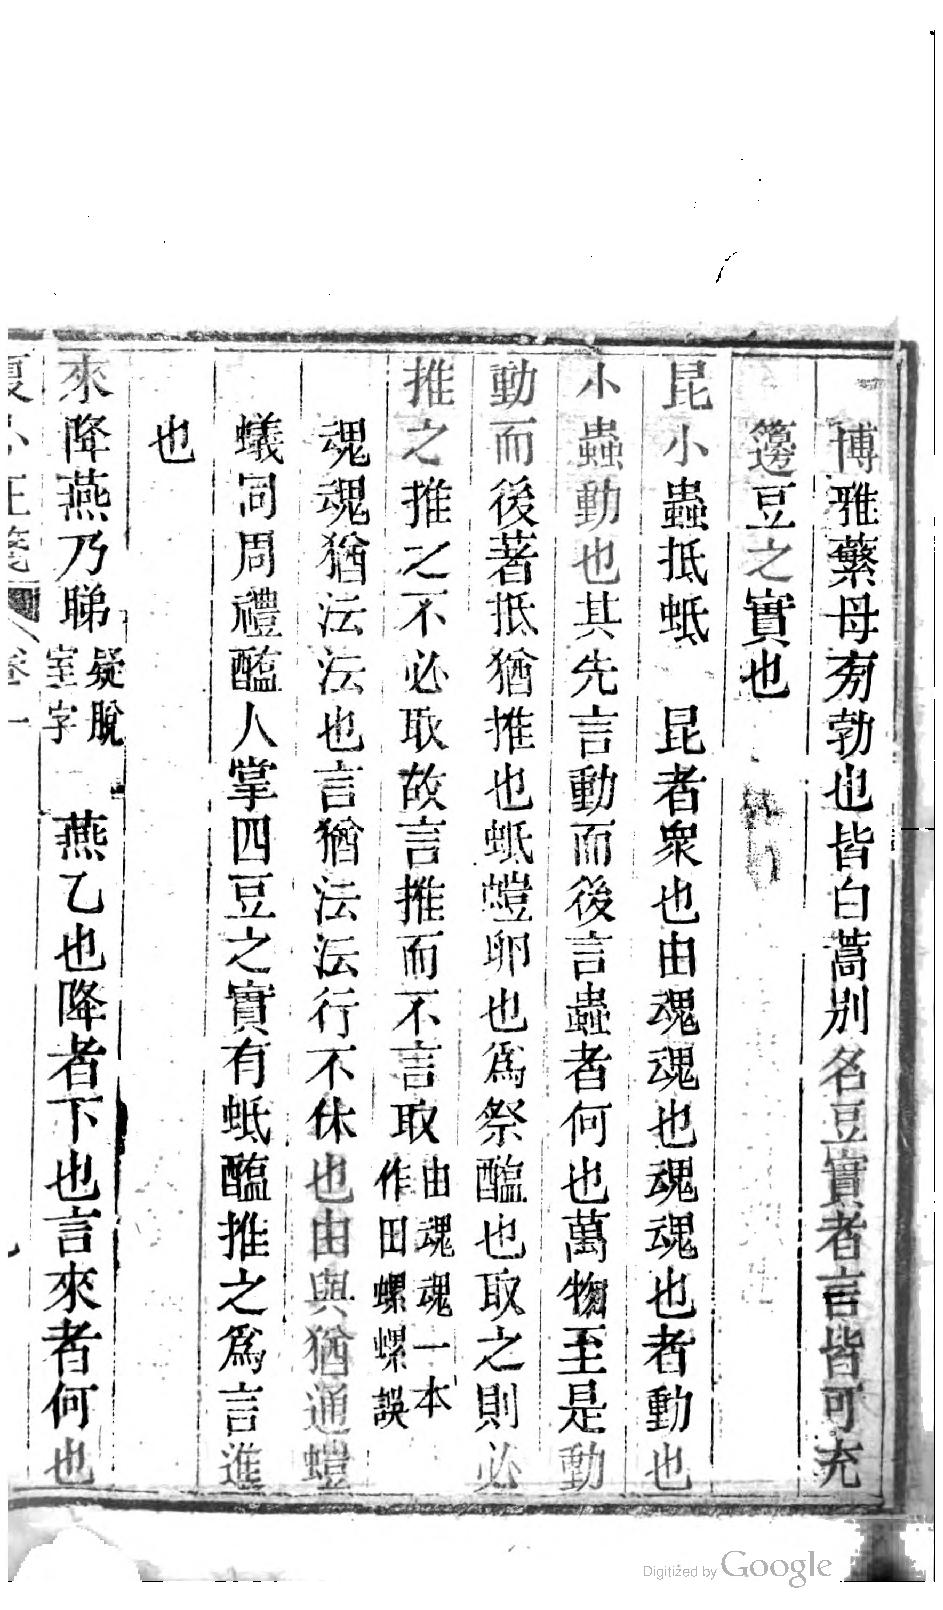 博雅蘩母㫄勃也皆白蒿别名豆實者言皆可充
籩豆之實也
昆小蟲抵蚳　昆者衆也由魂魂也魂魂也者動也
小蟲動也其先言動而後言蟲者何也萬物至是動
動而後著抵猶推也蚳螘卵也爲祭醢也取之則必
推之推之不必取故言推而不言取由魂魂一本作田螺螺誤
魂魂猶沄沄也言猶沄沄行不休也由與猶通螘
蟻同周禮醢人掌四豆之實有蚳醢推之爲言進
也
來降燕乃睇疑脫室字　燕乙也降者下也言來者何也
夏小正箋　卷一
Digitized by Google